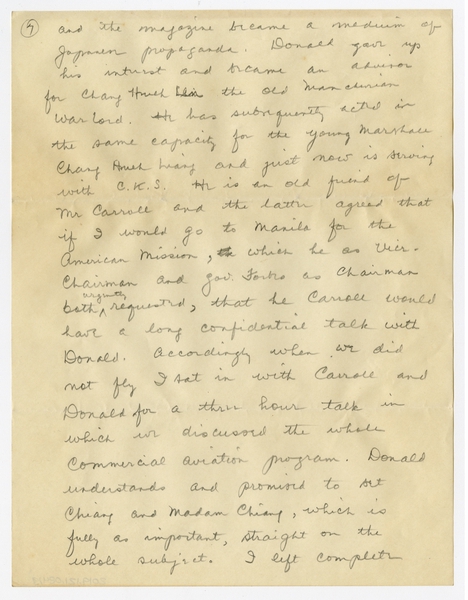 7
and the magazine became a medium of
Japanese propaganda. Donald gave up
his interest and became an advisor
for Chang Hsueh the old Manchurian
War Lord. He has subsequently acted in
the same capacity for the young Marshall
Chang Hsueh Liang and just now is serving
with C.K.S. He is an old friend of
Mr Carroll and the latter agreed that
if I would go to Manila for the
American Mission, which he as Vice-
Chairman and Gov. Forbes as Chairman
both urgently requested, that he Carroll would
have a long confidential talk with
Donald. Accordingly when we did
not fly I sat in with Carroll and
Donald for a three hour talk in
which we discussed the whole
commercial aviation program. Donald
understands and promised to set
Chiang and Madam Chiang, which is
fully as important, straight on the
whole subject. I left complete